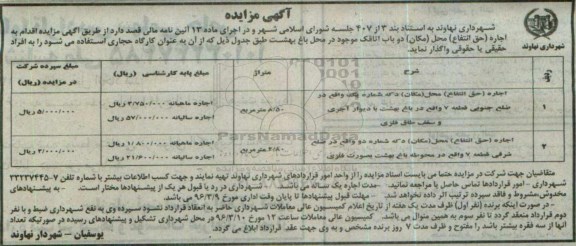 آگهی مزایده
شهرداری نهاوند
شهرداری نهاوند به استناد بند ۳ از ۴۰۷ جلسه شورای اسلامی شهر و در اجرای ماده ۱۳ آئین نامه مالی قصد دارد از طریق آگهی مزایده اقدام به
اجاره (حق انتفاع) محل (مکان) دو باب اتاقک موجود در محل باغ بهشت طبق جدول ذیل که از آن به عنوان کارگاه حجاری استفاده می شود را به افراد
حقیقی یا حقوقی واگذار نماید.
ردیف شرح متراژ مبلغ پایه کارشناسی (ریال) مبلغ سپرده شرکت در مزایده (ریال)
۱ اجاره (حق انتفاع) محل(مکان) دکه شماره یک واقع در ضلع جنوبی قطعه ۷ واقع در باغ بهشت با دیوار آجری و سقف طاق فلزی مترمربع اجاره ماهیانه ۴/۷۵۰/۰۰۰ ریال اجاره سالیانه ۵۷/۰۰۰/۰۰۰ ریال ۵/۰۰۰/۰۰۰
۲ اجاره (حق انتفاع) محل(مکان) دکه شماره دو واقع در ضلع شرقی قطعه ۷ واقع در محوطه باغ بهشت بصورت فلزی مترمربع اجاره ماهیانه ۱/۸۰۰/۰۰۰ ریال اجاره سالیانه ۲۱/۶۰۰/۰۰۰ ریال ۲/۰۰۰/۰۰۰
متقاضیان جهت شرکت در مزایده حتما می بایست اسناد مزایده را از واحد امور قراردادهای شهرداری نهاوند تهیه نمایند و جهت کسب اطلاعات بیشتر با شماره تلفن ۷-۳۳۲۳۷۴۴۵
شهرداری - امور قراردادها تماس حاصل یا مراجعه نمائید. -مدت اجاره یک ساله می باشد. - شهرداری در رد یا قبول هر یک از پیشنهادها مختار است. - به پیشنهادهای
مخدوش مشروط و فاقد سپرده ترتیب اثر داده نخواهد شد. - مهلت قبول پیشنهادها تا پایان وقت اداری مورخ ۹۶/۳/۹ می باشد.
- در صورت اینکه برنده (نفر اول) ظرف مدت یک هفته از تاریخ اعلام کمیسیون عالی معاملات شهرداری حاضر به انعقاد قرارداد نشود سپرده وی به نفع شهرداری ضبط و با نفر
دوم قرارداد منعقد گردد تا نفر سوم به همین منوال می باشد. کمیسیون عالی معاملات ساعت ۱۲ مورخ ۹۶/۳/۱۰ در محل شهرداری تشکیل و پیشنهادهای رسیده در صورتیکه تعداد
آنها از سه فقره بیشتر باشد را مفتوح و ظرف مدت ۷ روز برنده مشخص و به وی جهت عقد قرارداد ابلاغ می گردد.
یوسفیان - شهردار نهاوند
ParsNamadData